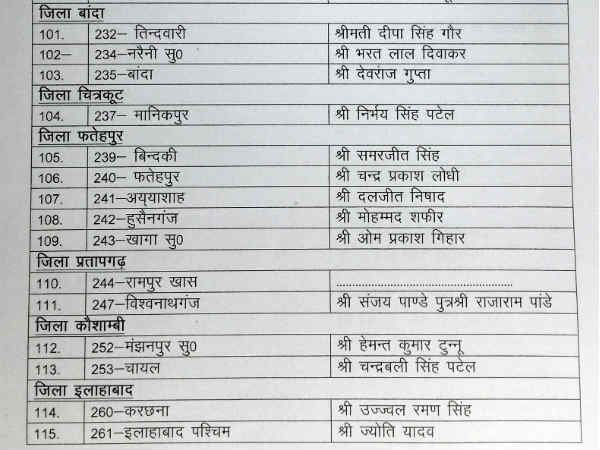 जिला बांदा
101. 232– तिन्दवारी श्रीमती दीपा सिंह गौर
102– 234–नरैनी सु0 श्री भरत लाल दिवाकर
103. 235–बांदा श्री देवराज गुप्ता
जिला चित्रकूट
104. 237– मानिकपुर श्री निर्भय सिंह पटेल
जिला फतेहपुर
105. 239– बिन्दकी श्री समरजीत सिंह
106. 240– फतेहपुर श्री चन्द्र प्रकाश लोधी
107. 241–अय्याशाह श्री दलजीत निषाद
108. 242–हुसैनगंज श्री मोहम्मद शफीर
109. 243–खागा सु0 श्री ओम प्रकाश गिहार
जिला प्रतापगढ़
110. 244–रामपुर खास ..........................................................
111. 247–विश्वनाथगंज श्री संजय पाण्डे पुत्रश्री राजाराम पांडे
जिला कौशाम्बी
112. 252–मंझनपुर सु0 श्री हेमन्त कुमार टुन्नू
113. 253–चायल श्री चन्द्रबली सिंह पटेल
जिला इलाहाबाद
114. 260–करछना श्री उज्ज्वल रमण सिंह
115. 261–इलाहाबाद पश्चिम श्री ज्योति यादव